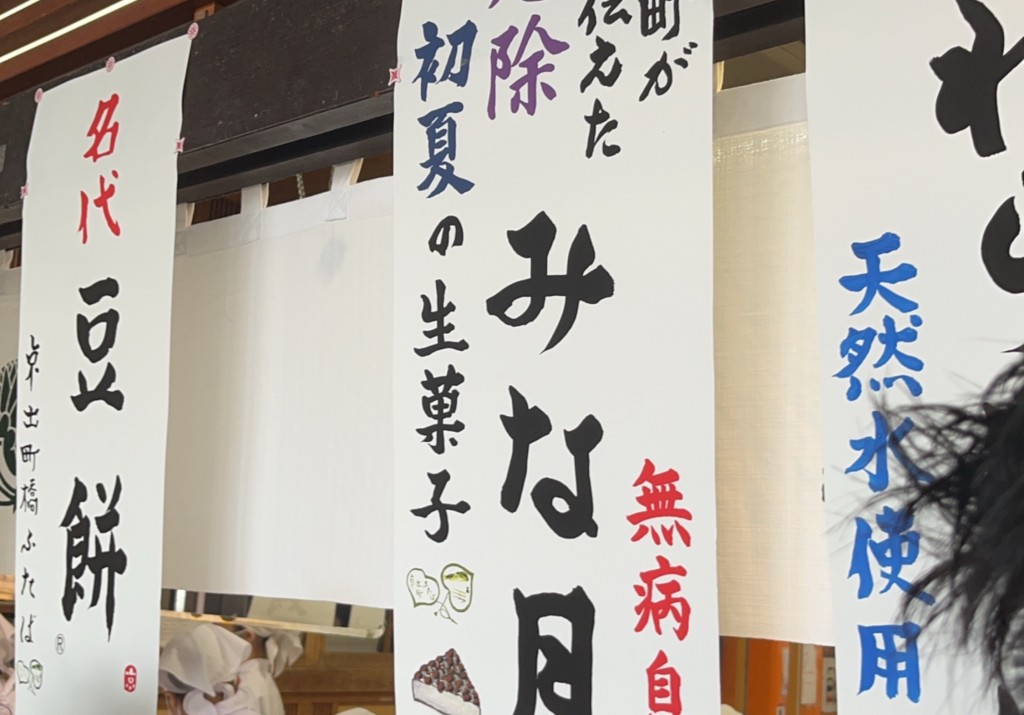 天然水使用
町が
伝えた
無病
みな月
除
初夏の生菓子
名代 豆餅
®
京出町橋ふたば